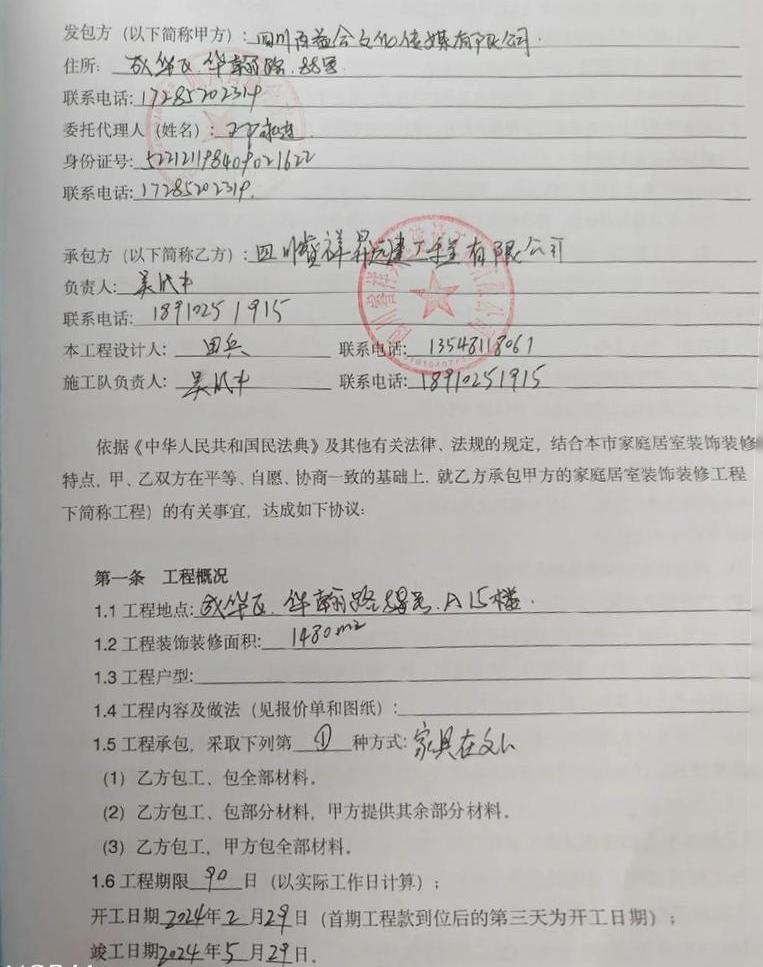 发包方（以下简称甲方）：四川百益会文化传媒有限公司.
住所： 成华区.华翰路.号
联系电话：17285202319
委托代理人（姓名）：
身份证号：522121198409021622
联系电话：17285202319.
承包方（以下简称乙方）：四川睿祥昇建工程有限公司
负责人：吴
联系电话： 18910251915
本工程设计人： 田兵 联系电话： 13548118061
施工队负责人： 吴 联系电话： 18910251915
依据《中华人民共和国民法典》及其他有关法律、法规的规定，结合本市家庭居室装饰装修
特点，甲、乙双方在平等、自愿、协商一致的基础上，就乙方承包甲方的家庭居室装饰装修工程
下简称工程）的有关事宜，达成如下协议：
第一条 工程概况
1.1 工程地点：成华区.华翰路号.A15楼.
1.2 工程装饰装修面积： 1480m²
1.3 工程户型：
1.4 工程内容及做法（见报价单和图纸）：
1.5 工程承包，采取下列第 ① 种方式：家具在
（1）乙方包工、包全部材料。
（2）乙方包工、包部分材料，甲方提供其余部分材料。
（3）乙方包工，甲方包全部材料。
1.6 工程期限 90 日（以实际工作日计算）；
开工日期 2024年 2 月 29 日（首期工程款到位后的第三天为开工日期）；
竣工日期 2024年 5 月 29 日.